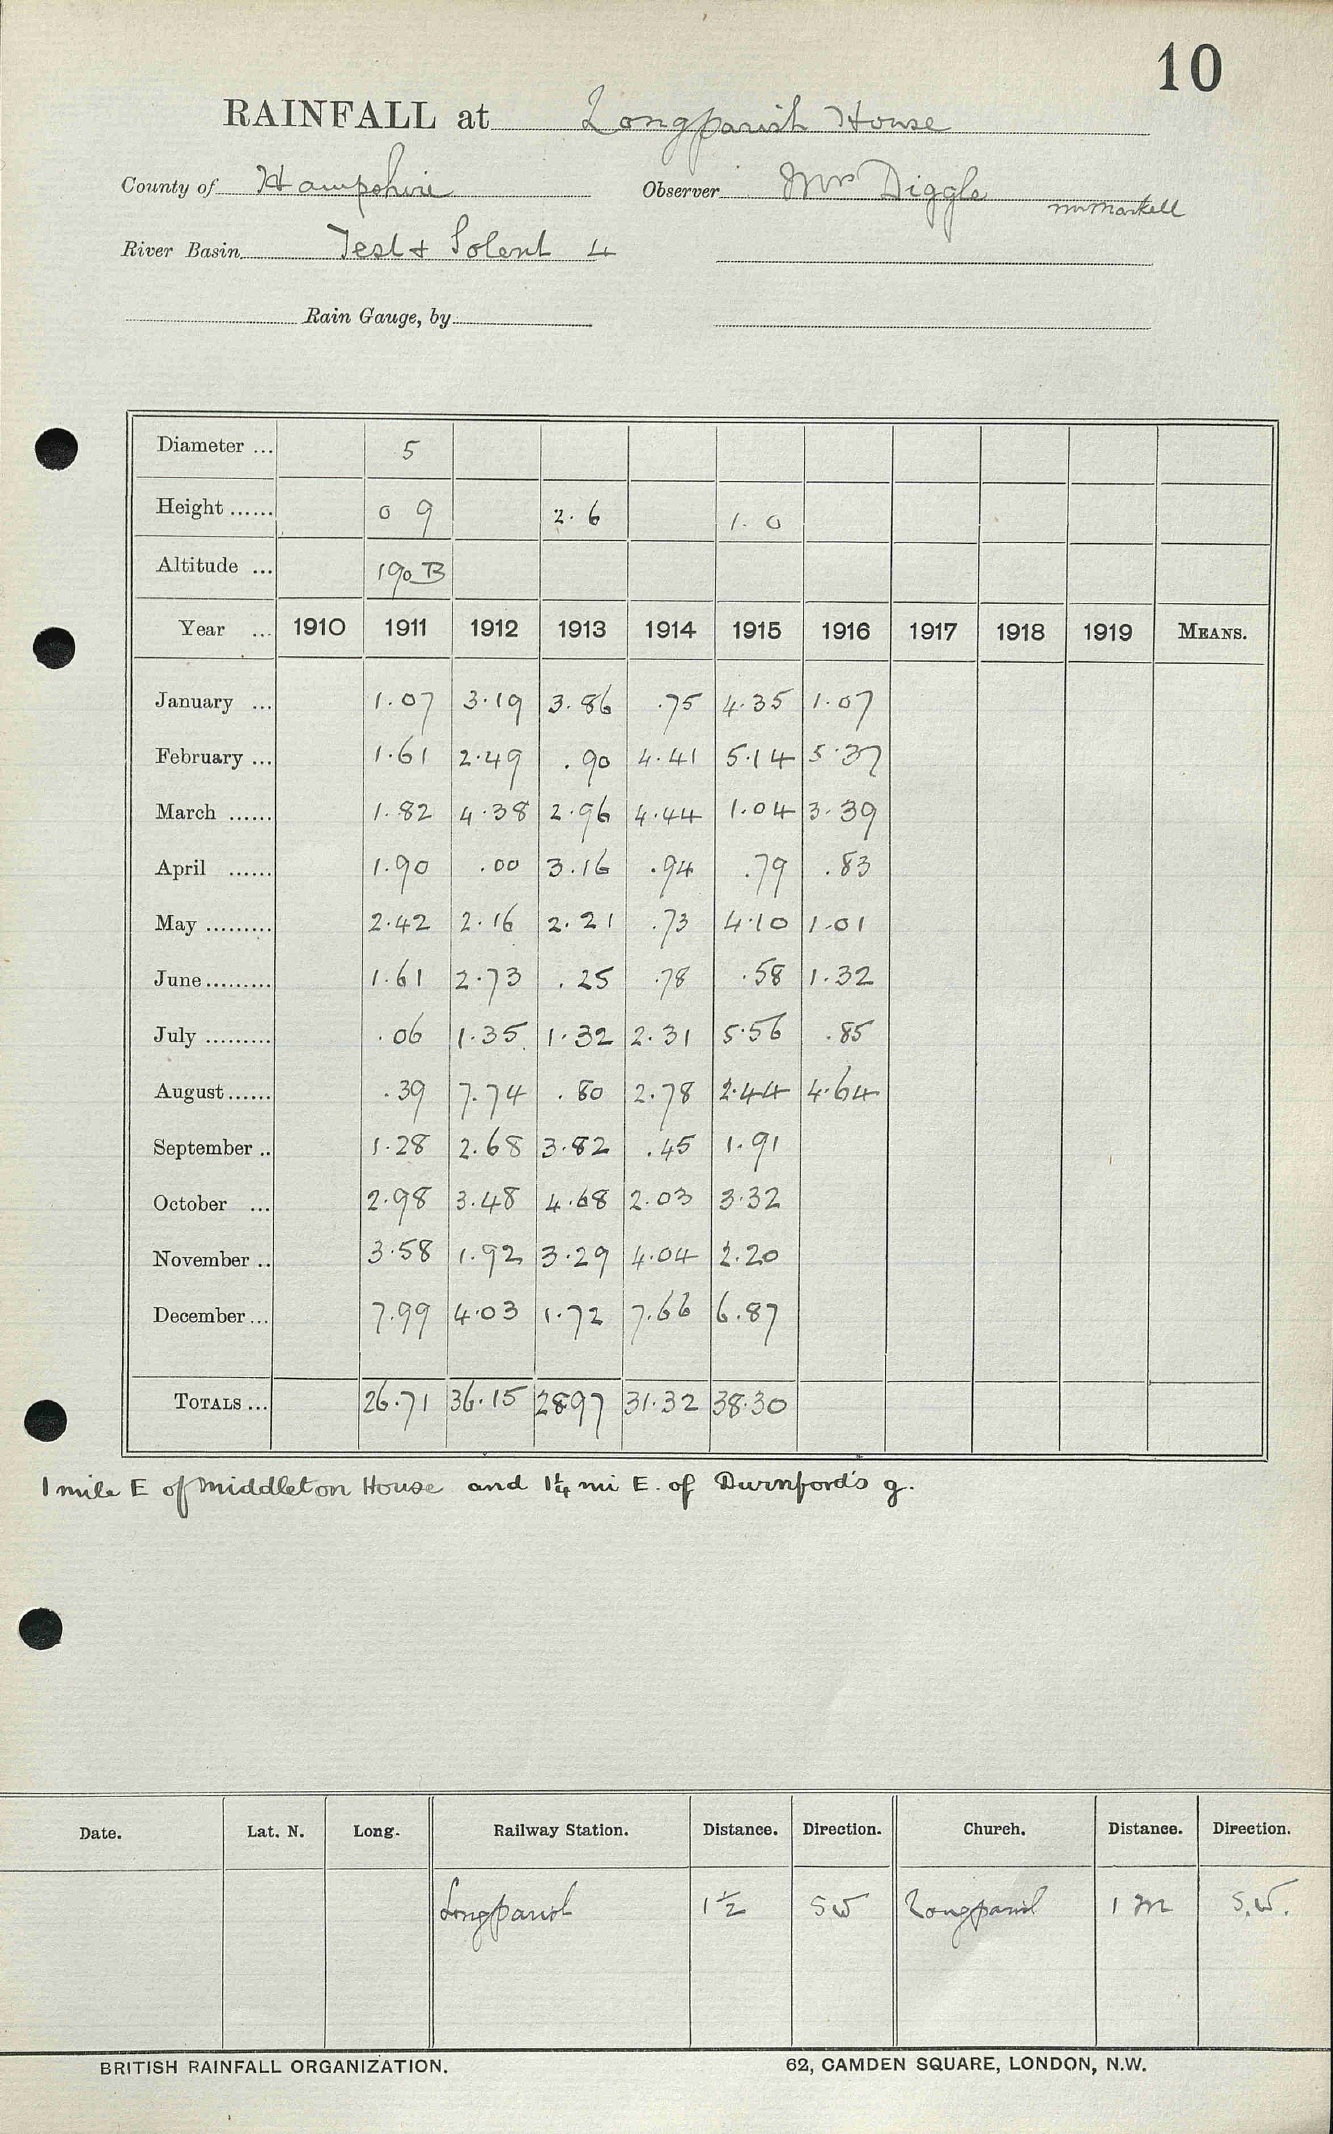 10
RAINFALL at Longparish House
County of Hampshire Observer Mrs Diggle
Mr Markell
River Basin Test & Solent 4
Rain Gauge, by
Diameter ... 5
Height ...... 0 9 2.6 1.0
Altitude ... 190 B
Year ... 1910 1911 1912 1913 1914 1915 1916 1917 1918 1919 MEANS.
January ... 1.07 3.19 3.86 .75 4.35 1.07
February ... 1.61 2.49 .90 4.41 5.14 5.37
March ...... 1.82 4.38 2.96 4.44 1.04 3.39
April ...... 1.90 .00 3.16 .94 .79 .83
May ......... 2.42 2.16 2.21 .73 4.10 1.01
June ......... 1.61 2.73 .25 .78 .58 1.32
July ......... .06 1.35 1.32 2.31 5.56 .85
August ...... .39 7.74 .80 2.78 2.44 4.64
September .. 1.28 2.68 3.82 .45 1.91
October ... 2.98 3.48 4.68 2.03 3.32
November .. 3.58 1.92 3.29 4.04 2.20
December ... 7.99 4.03 1.72 7.66 6.87
TOTALS ... 26.71 36.15 28.97 31.32 38.30
1 mile E of Middleton House and 1¼ mi E. of Durnford's g.
Date. Lat. N. Long. Railway Station. Distance. Direction. Church. Distance. Direction.
Longparish 1½ SW Longparish 1 m S.W.
BRITISH RAINFALL ORGANIZATION. 62, CAMDEN SQUARE, LONDON, N.W.